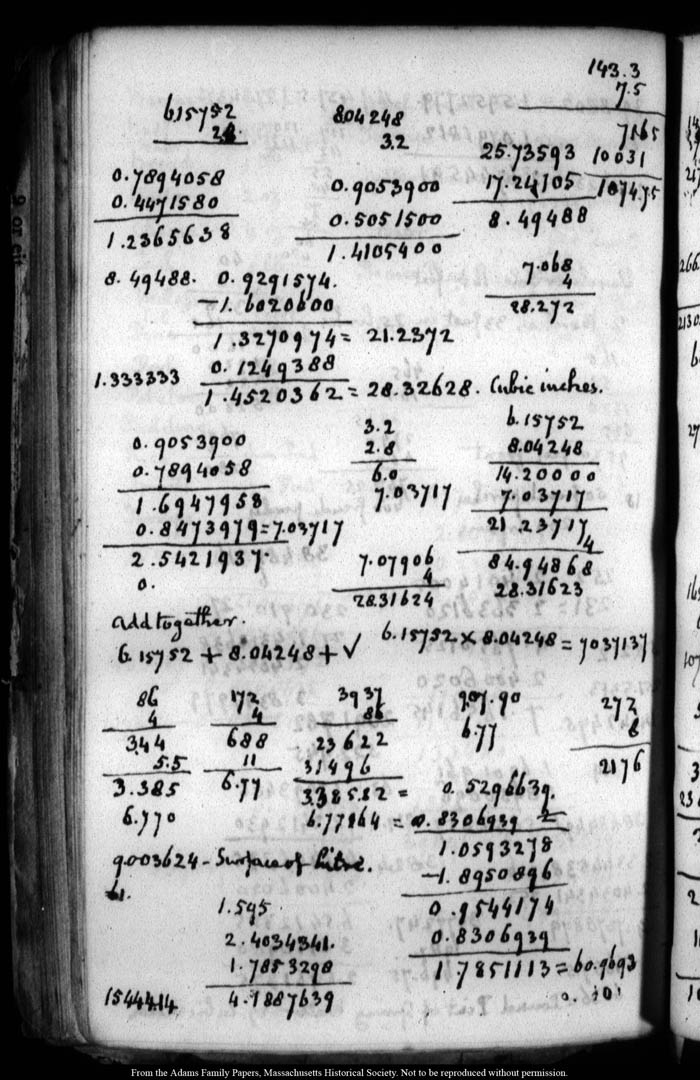 143.3
7.5
7165
10031
1074.75
615752
28
804248
32
25.73593
17.24105
8.49488
0.7894058
0.4471580
1.2365638
0.9053900
0.5051500
1.4105400
7.068
4
28.272
8.49488. 0.9291574.
-1.6020600
1.3270974 = 21.2372
1.333333 0.1249388
1.4520362 = 28.32628. Cubic inches.
0.9053900
0.7894058
1.6947958
0.8473979 = 7.03717
2.5421937.
0.
3.2
2.8
6.0
7.03717
6.15752
8.04248
14.20000
7.03717
21.23717
4
84.94868
28.31623
7.07906
4
28.31624
add together.
6.15752 + 8.04248 + √ 6.15752 × 8.04248 = 7037137
86
4
344
5.5
3.385
6.770
172
4
688
11
6.77
3937
86
23622
31496
338582 =
6.77164 =
907.90
6.77
272
8
2176
0.5296639.
0.8306939 2
1.0593278
-1.8950896
0.9544174
0.8306939
1.7851113 = 60.9693
0. 101
9003624 - Surface of Litre.
61.
1.545
2.4034341.
1.7853298
1544414 4.1887639
From the Adams Family Papers, Massachusetts Historical Society. Not to be reproduced without permission.